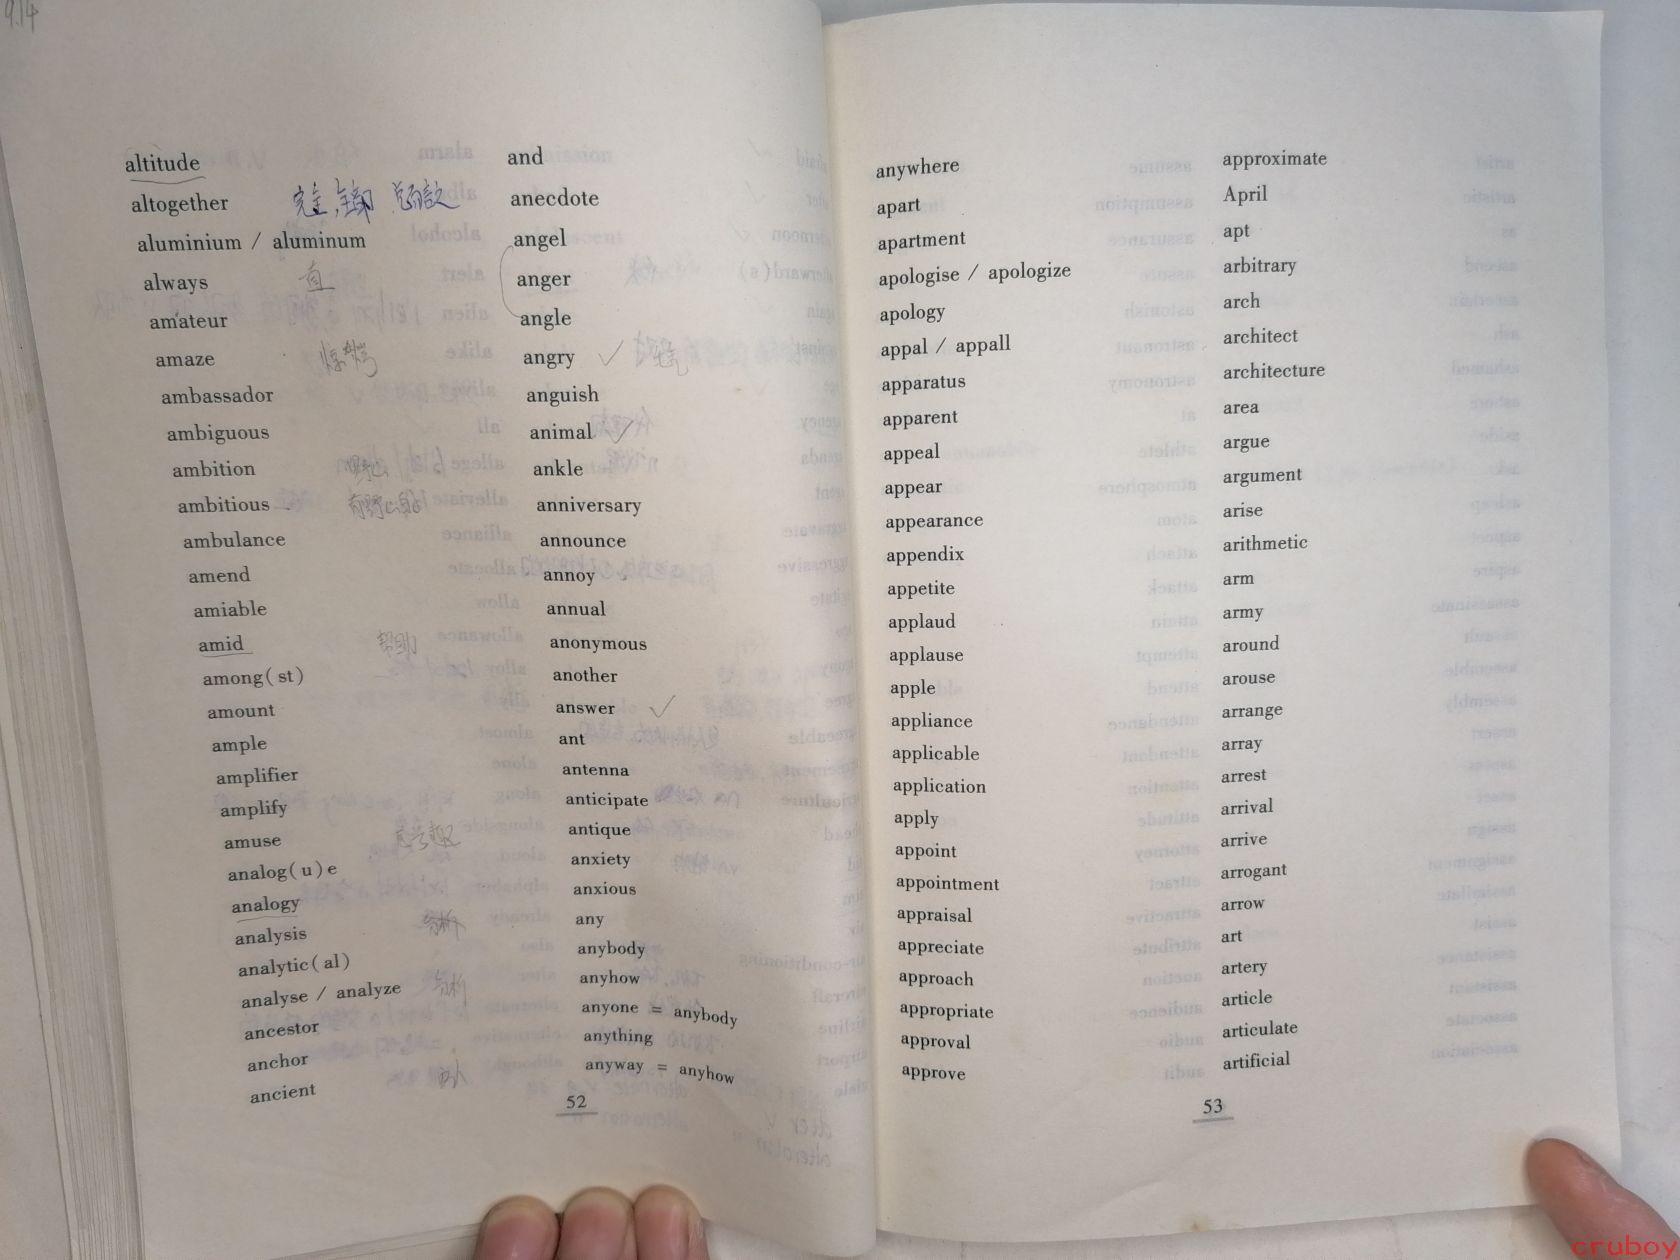 9.14
altitude
altogether 完全,全部 总而言之
aluminium / aluminum
always 直
amateur
amaze 惊愕
ambassador
ambiguous
ambition 野心
ambitious 有野心的
ambulance
amend
amiable
amid 帮助
among(st)
amount
ample
amplifier
amplify
amuse 感兴趣
analog(u)e
analogy
analysis 分析
analytic(al)
analyse / analyze 分析
ancestor
anchor
ancient
and
anecdote
angel
anger
angle
angry ✓ 生气
anguish
animal ✓
ankle
anniversary
announce
annoy
annual
anonymous
another
answer ✓
ant
antenna
anticipate
antique
anxiety
anxious
any
anybody
anyhow
anyone = anybody
anything
anyway = anyhow
52
anywhere
apart
apartment
apologise / apologize
apology
appal / appall
apparatus
apparent
appeal
appear
appearance
appendix
appetite
applaud
applause
apple
appliance
applicable
application
apply
appoint
appointment
appraisal
appreciate
approach
appropriate
approval
approve
approximate
April
apt
arbitrary
arch
architect
architecture
area
argue
argument
arise
arithmetic
arm
army
around
arouse
arrange
array
arrest
arrival
arrive
arrogant
arrow
art
artery
article
articulate
artificial
53
cruboy